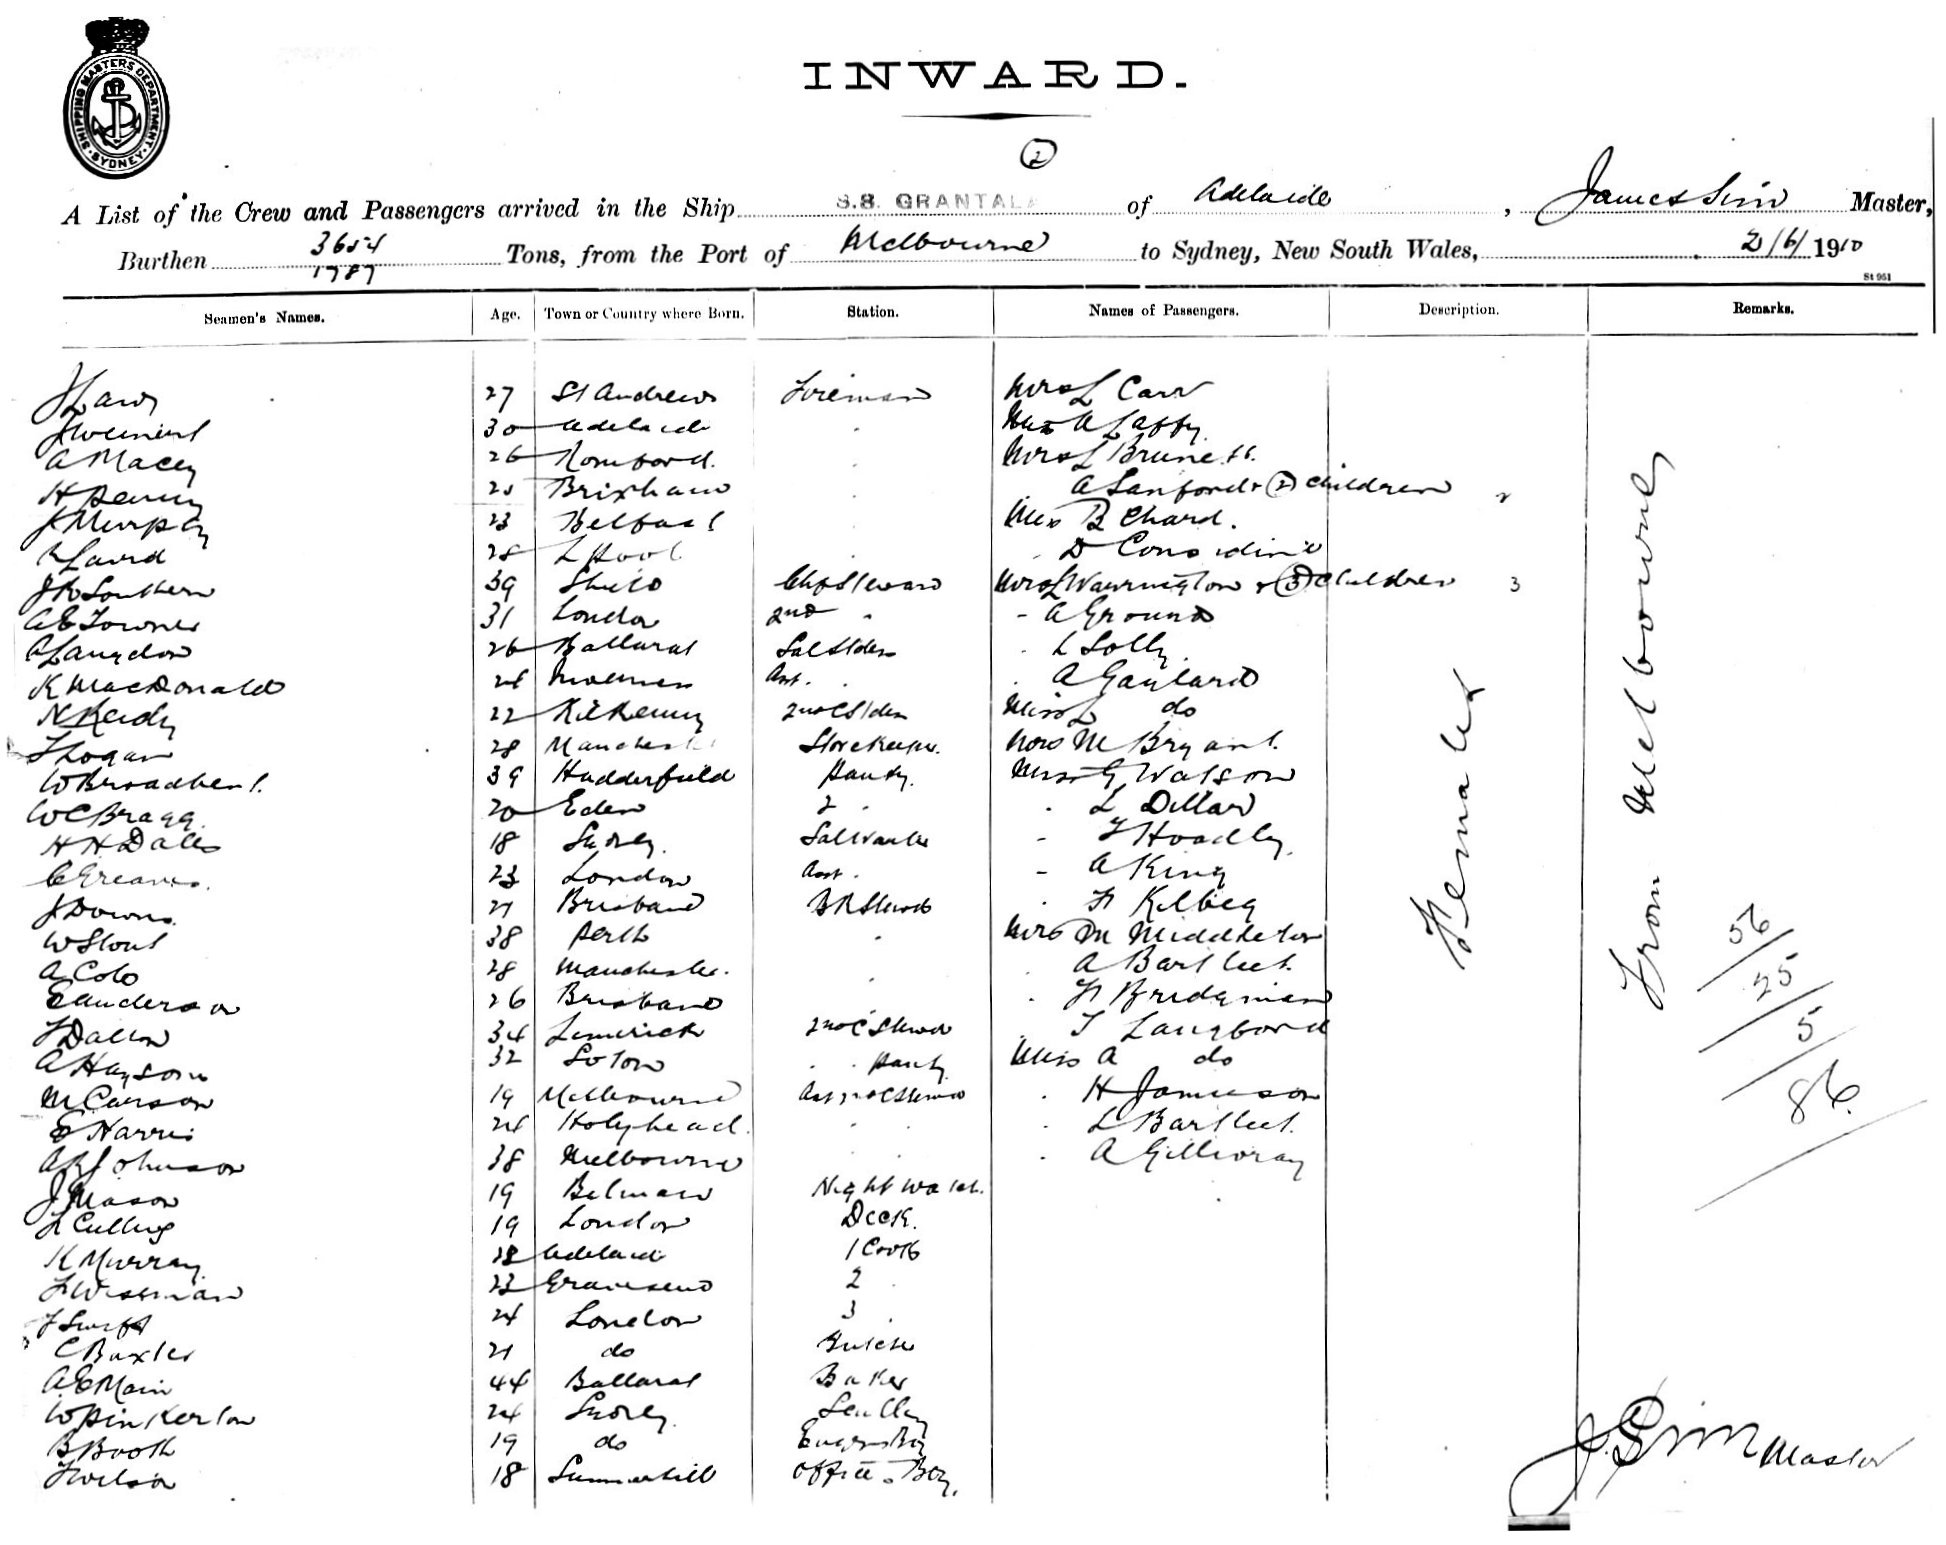 SHIPPING MASTERS DEPARTMENT
SYDNEY
INWARD.
2
A List of the Crew and Passengers arrived in the Ship S.S. GRANTALA of Adelaide, James Sim Master,
Burthen 3654 Tons, from the Port of Melbourne to Sydney, New South Wales, 2/6/1910
1787
St 951
Seamen's Names. Age. Town or Country where Born. Station. Names of Passengers. Description. Remarks.
27 St Andrews Foreman Mrs L Carr
30 Adelaide A Laffy
A Macey 26 Romford. Mrs L Brunett.
H Penny Brixham A Sanford & 2 children 2
J Murphy 23 Belfast B Chard.
Laird 28 L Pool D Considine
J R Southern 39 Chf Steward Mrs L Warrington & 3 children 3
A E Towner 31 London 2nd " - A Ground
A Langdon 26 Ballarat L Solly
K MacDonald Asst. A Gaylard
N Keidy 22 Kilkenny Miss L do
Logan 28 Manchester Storekeeper. Mrs M Bryant.
W Broadbent. 39 Hudderfield Pantry. Miss G Watson
W C Bragg. 20 Eden 2 " L Dillar
H H Dales 18 Sydney. - F Hoadley.
C Greaves. 23 London Asst. - A King
J Downs. 21 Brisbane B R Steward F Kilbeg
W Stout 38 Perth " Mrs M Middleton
A Cole 28 Manchester. A Bartlett.
E Anderson 26 Brisbane F Bridgman
F Dalton 34 Limerick T Langford
A Haysom 32 Soton Pantry. Miss A do
M Carson 19 Melbourne H Jamieson
E Harris 24 Holyhead. L Bartlett.
A R Johnson 38 Melbourne A Gillivray
J Mason 19 Balmain Night Watch.
L Culling 19 London Deck.
K Murray. Adelaide 1 Cook
F Wiseman 23 Gravesend 2 "
F Swift 24 London 3 "
C Baxter 21 do Butcher
A E Main 44 Ballarat Baker
W Pinkerton 24 Sydney. Scullery
B Booth 19 do Engrs Boy
F Wilson 18 Summerhill Office Boy.
Females
From Melbourne
56
25
5
86.
J Sim Master